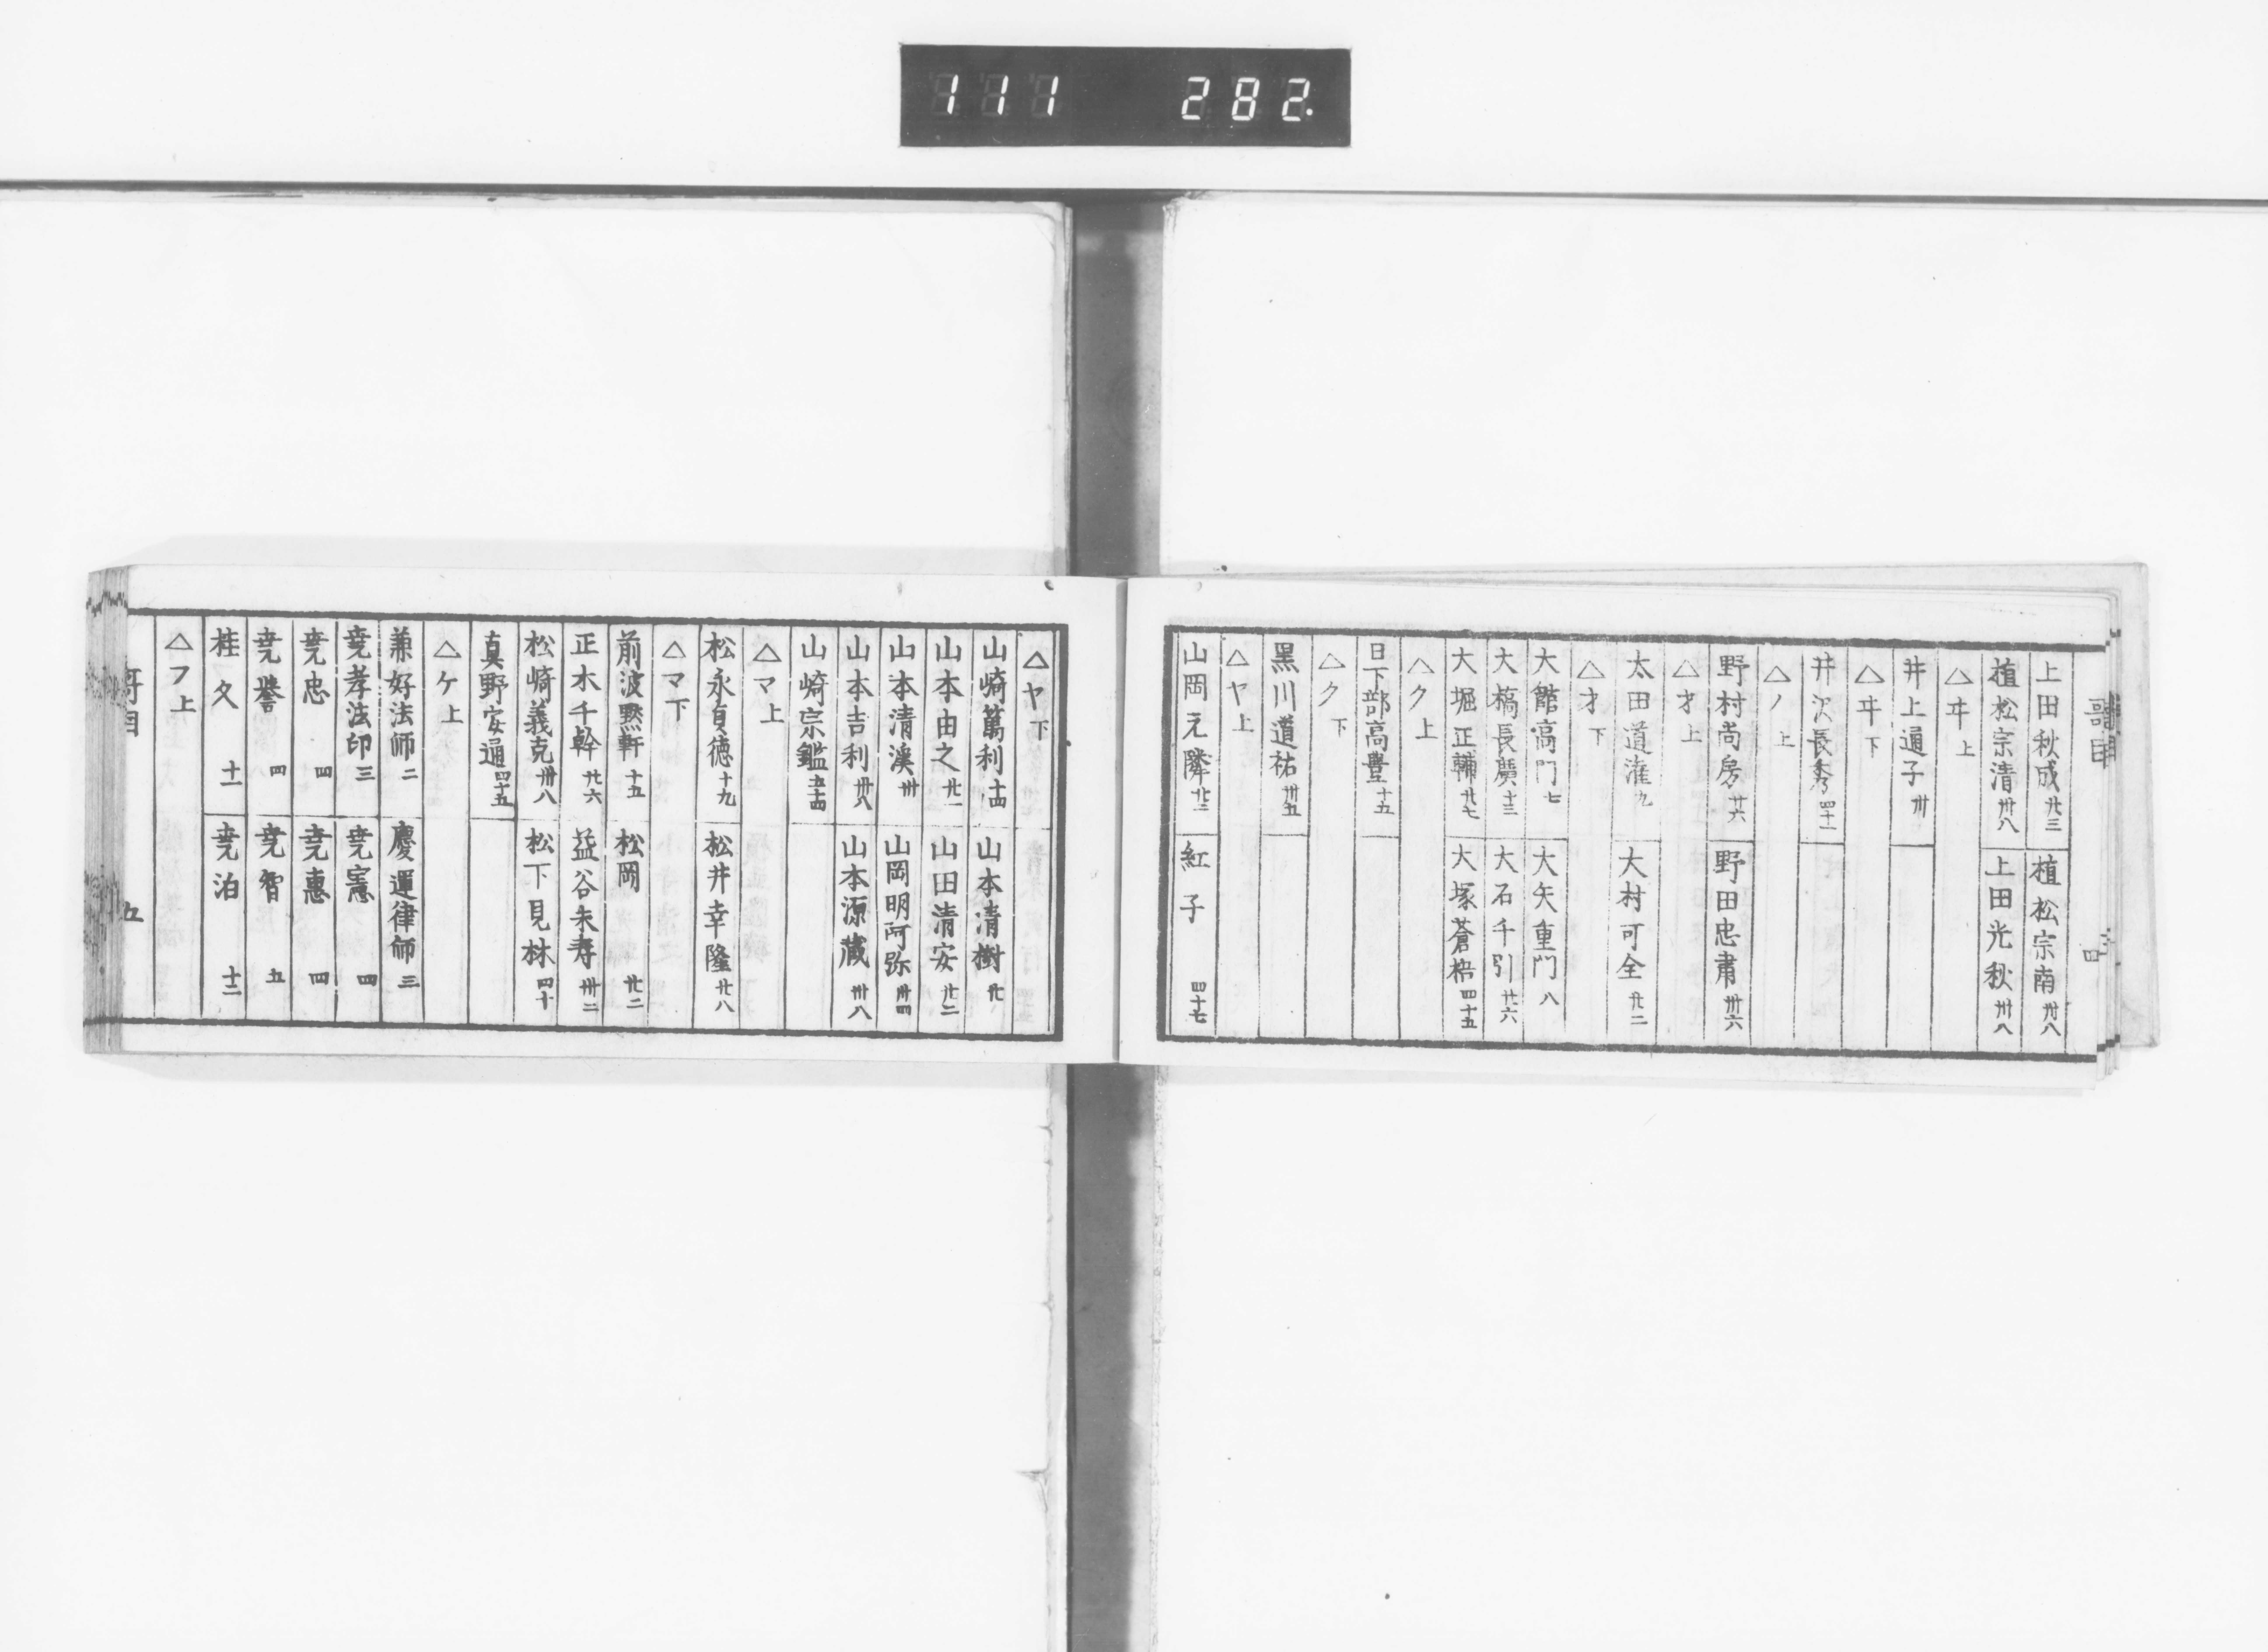 111 282.
哥目 四
上田秋成 廿三 植松宗南 卅八
植松宗清 卅八 上田光秋 卅八
△ヰ上
井上通子 卅
△ヰ下
井沢長秀 四十一
△ノ上
野村尚房 廿六 野田忠肅 卅六
△オ上
太田道灌 九 大村可全 廿二
△オ下
大館高門 七 大矢重門 八
大橋長廣 十三 大石千引 廿六
大堀正輔 廿七 大塚蒼梧 四十五
△ク上
日下部高豊 十五
△ク下
黒川道祐 卅五
△ヤ上
山岡元隣 廿三 紅子 四十七
△ヤ下
山崎萬利 十四 山本清樹 廿
山本由之 廿一 山田清安 廿二
山本清溪 卅 山岡明阿弥 卅四
山本吉利 卅八 山本源蔵 卅八
山崎宗鑑 五十四
△マ上
松永貞徳 十九 松井幸隆 廿八
△マ下
前波黙軒 十五 松岡 廿二
正木千幹 廿六 益谷朱寿 卅二
松崎義克 卅八 松下見林 四十
真野安通 四十五
△ケ上
兼好法師 二 慶運律師 三
尭孝法印 三 尭憲 四
尭忠 四 尭惠 四
尭誉 四 尭智 五
桂久 十一 尭泊 十二
△フ上
哥目 五